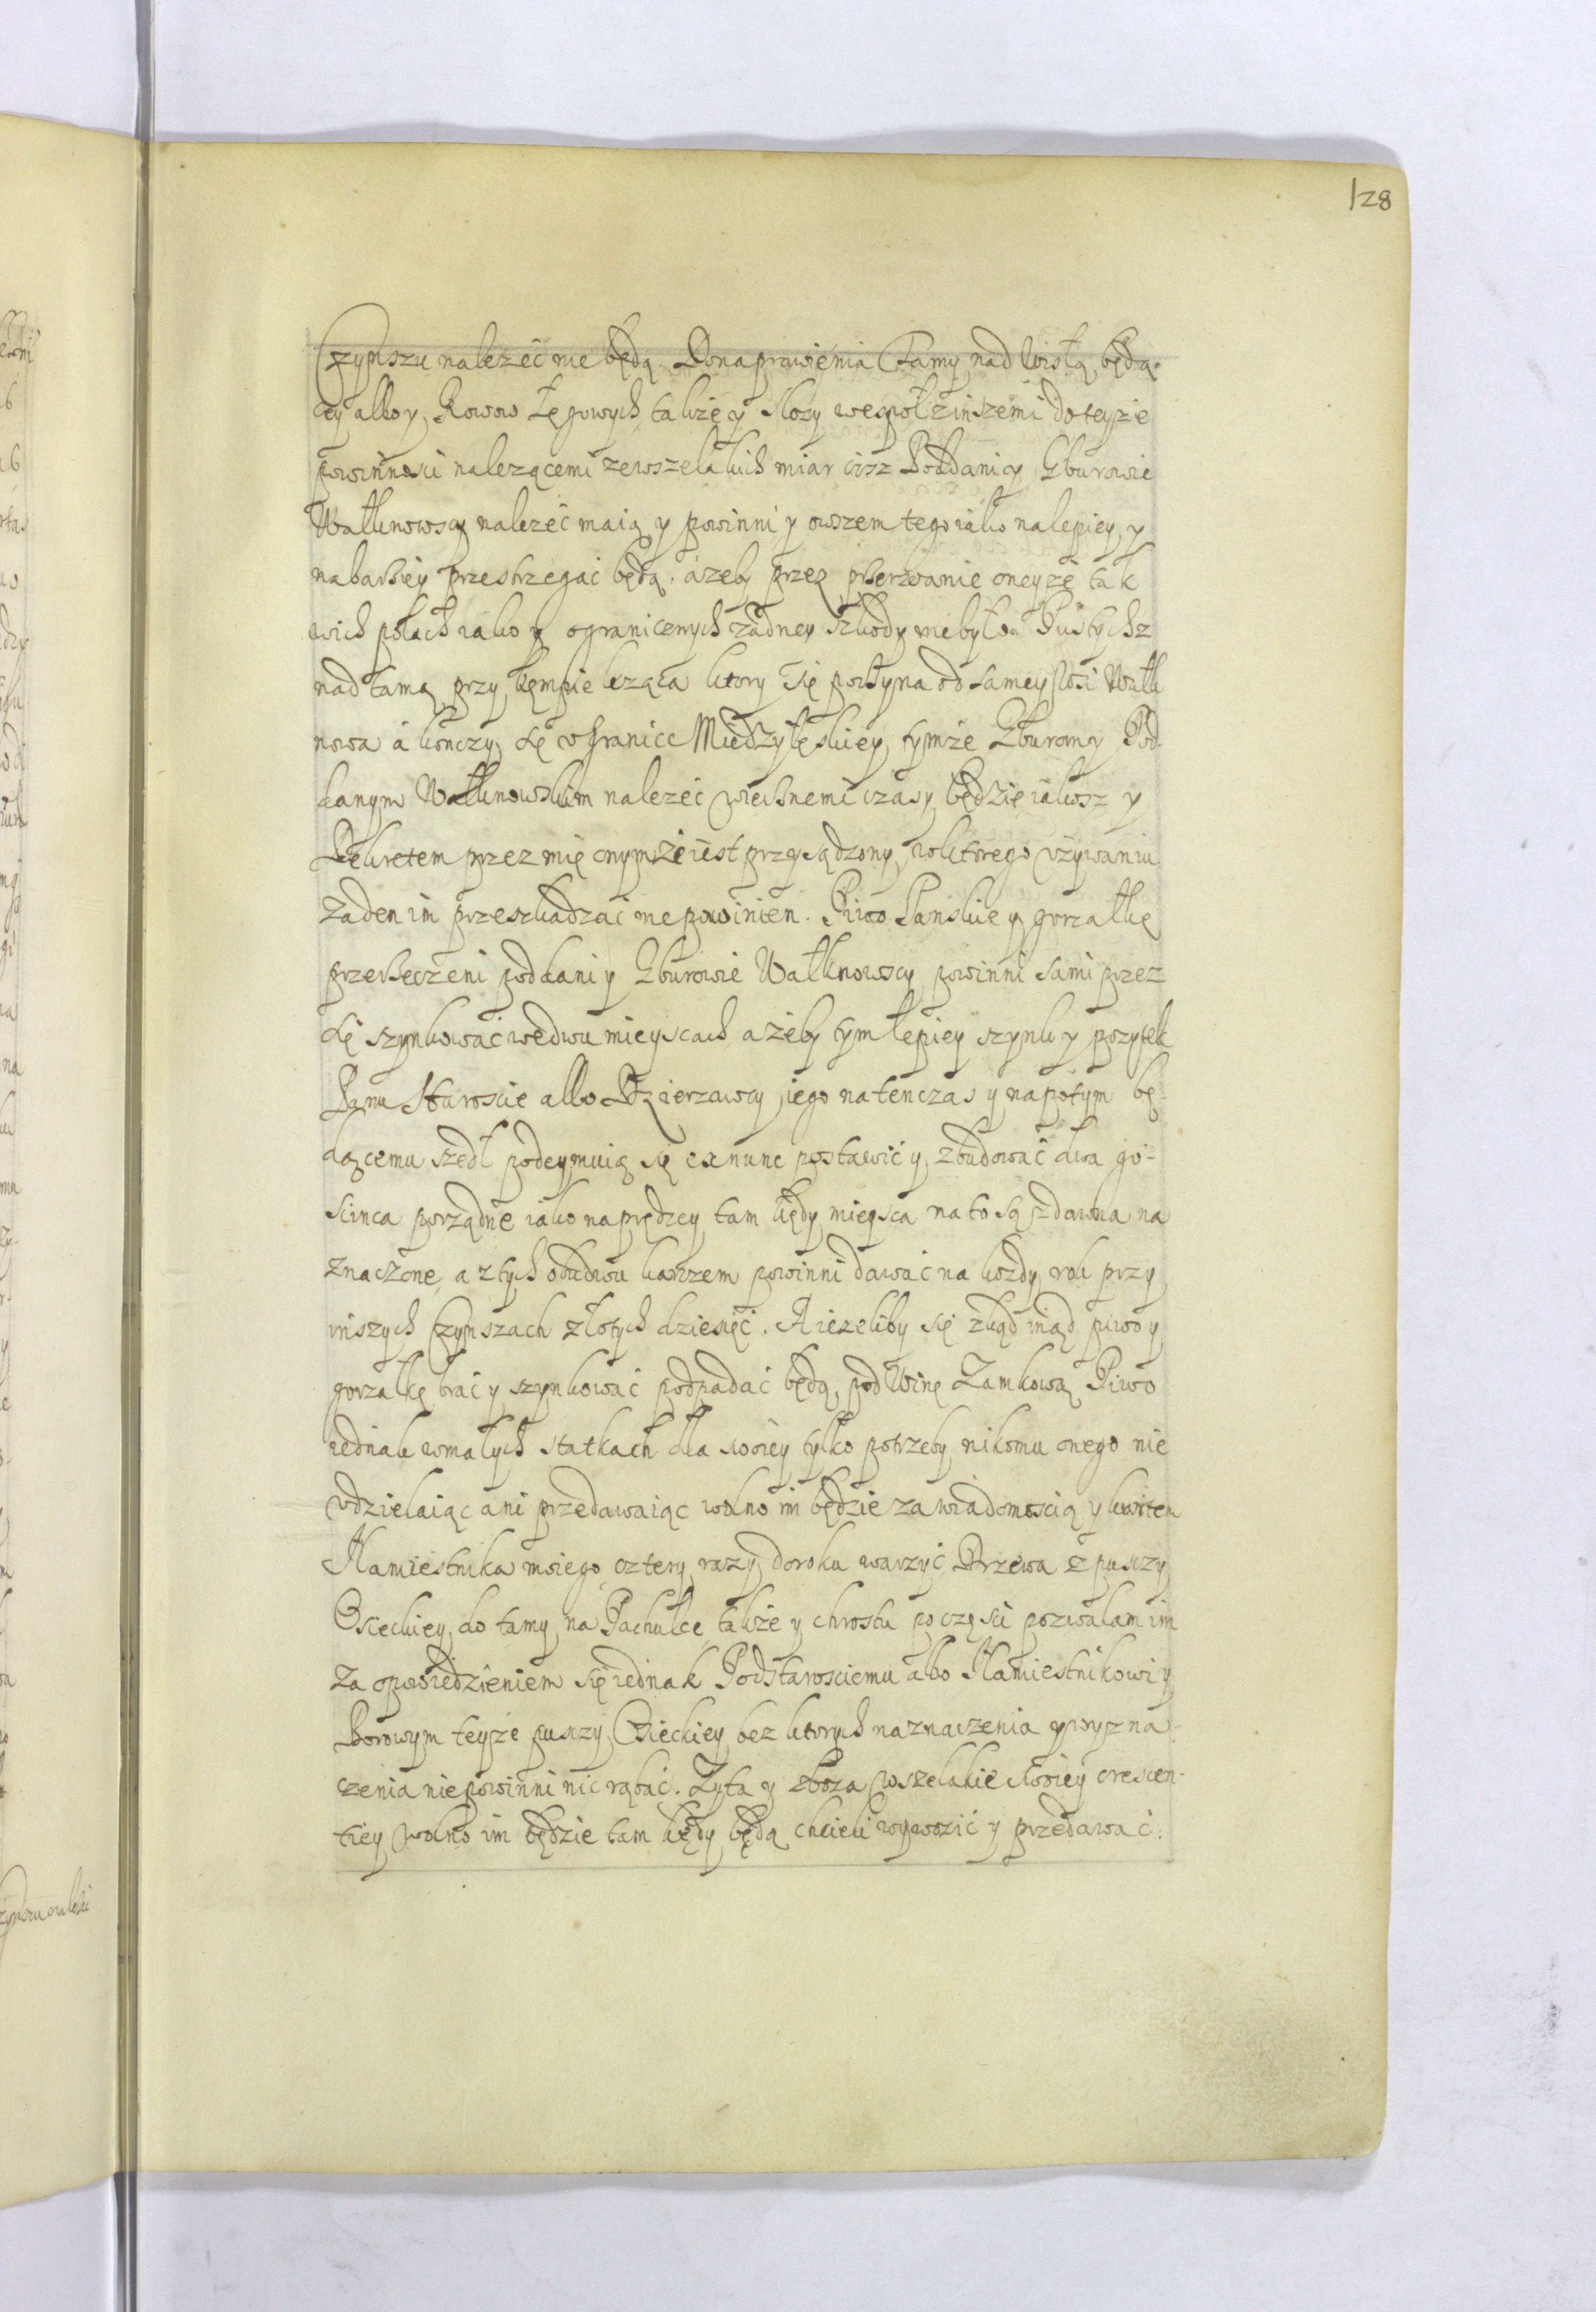 128
Czynszu nalezeć nie będą. Do naprawienia Tamy nad Wisłą będą-
cey albo y Rowow Łęgowych, takze y Slozy wespoł z inszemi do teyze
powinnosci nalezącemi ze wszelakich miar cisz Poddani y Gburowie
Watkinowscy nalezeć maią y powinni y owszem tego iako nalepiey y
nabarziey przestrzegać będą, azeby przez przerwanie oneyze tak
w ich polach iako y ogranicznych zadney szkody nie było.
nad tamą przy kępie leząca ktory się poczyna od samey
nowa a konczy się w Granice Międzyłęskiey, tymze Gburom y Pod-
danym Watkinowskim nalezeć wiecznemi czasy będzie iakosz y
Dekretem przez mię onymze iest przysądzony, w ktorego uzywaniu
zaden im przeszkadzać nie powinien. Piwo Panskie y gorzałkę
przerzeczeni poddani y Gburowie Watkinowscy powinni sami przez
się szynkować we dwu mieyscach a zeby tym lepiey szynk y pozytek
Panu Staroscie albo Dzierzawcy iego na ten czas y na potym bę-
dącemu szedł podeymuią się ex nunc postawić y zbudować dwa go-
scinca porządne iako naprędzey tam kędy mieysca na to są zdawna na
znaczone, a z tych obudwu karczem powinni dawać na kozdy rok przy
inszych Czynszach złotych dziesięć. A iezeliby się zkąd inąd piwo y
gorzałkę brać y szynkować podpadać będą pod Winę Zamkową Piwo
iednak w małych statkach dla swoiey tylko potrzeby nikomu onego nie
udzielaiąc ani przedawaiąc wolno im będzie za wiadomoscią y kwitem
Namiestnika moiego cztery razy do roku warzyć. Drzewa z puszczy
Osieckiey do tamy na Pachułce takze y chrostu po części pozwalam im
za opowiedzieniem się iednak Podstarosciemu albo Namiestnikowi y
Borowym teyze puszczy Osieckiey bez ktorych naznaczenia y wyzna-
czenia nie powinni nic rąbać. Zyta y zboza wszelakie swoiey crescen-
tiey wolno im będzie tam kędy będą chcieli wywozić y przedawać.